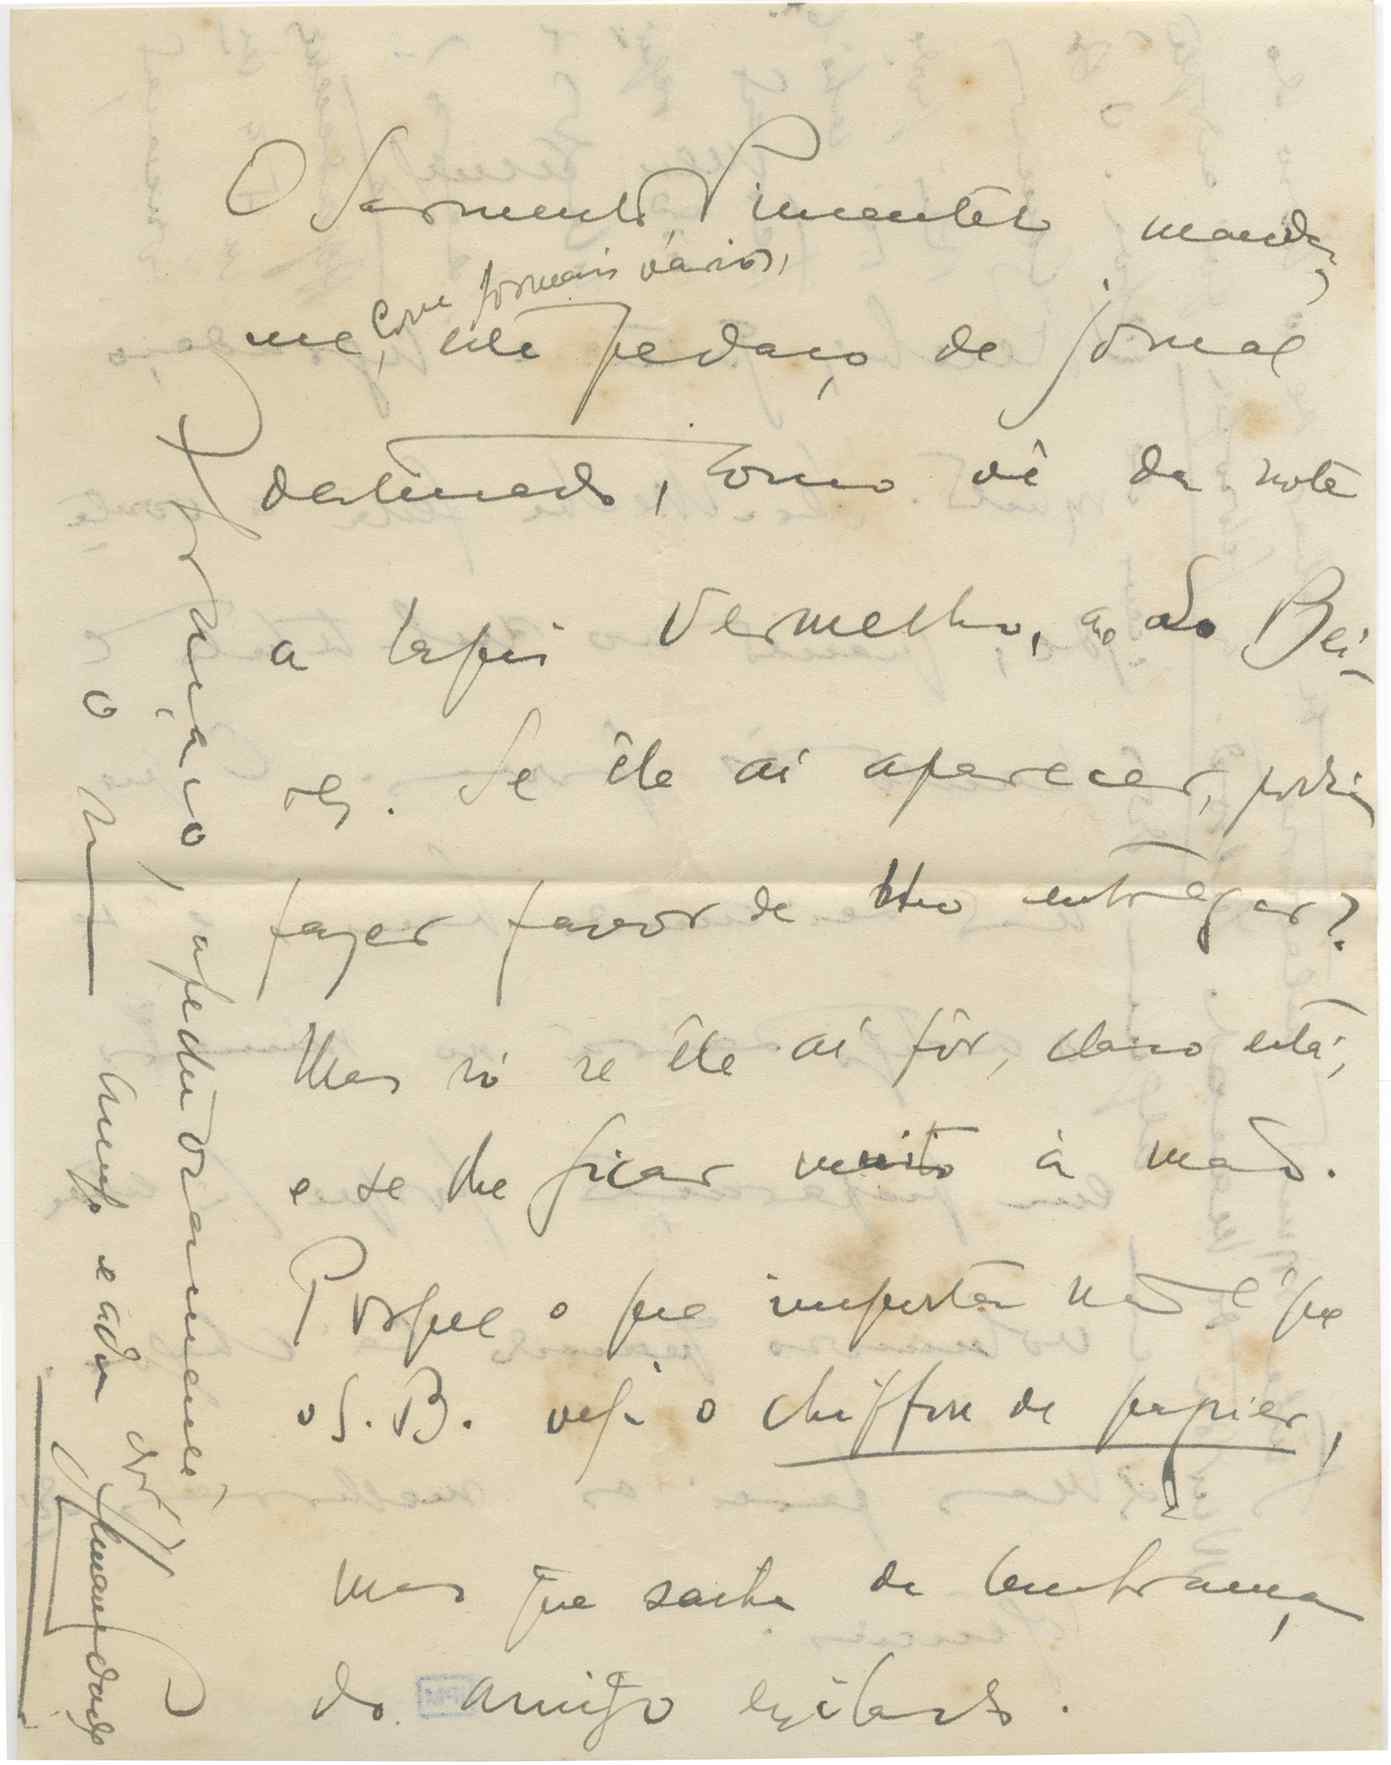 O Sarmento Pimentel manda-
me, com jornais vários,
este pedaço de jornal
destinado, como vê da nota
a lapis vermelho, ao do Bei-
rs. Se êle aí aparecer, podia
fazer favor de lho entregar?
Mas só se êle aí fôr, claro está,
e se lhe ficar muito à mão.
Porque o que importa não é que
o S. B. veja o chiffon de papier,
mas que saiba da lembrança
do amigo exilado.
abraça-o, apertadoramente,
o am.º e adm.dor